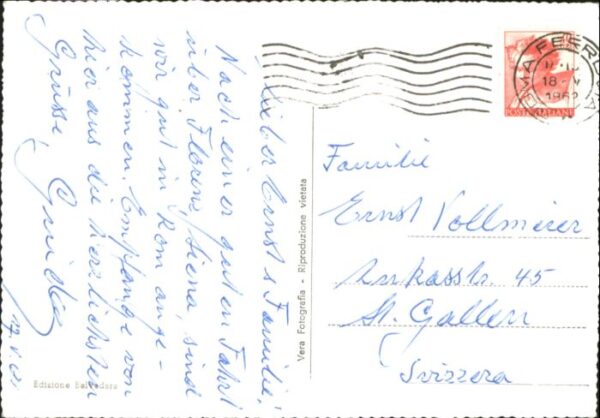 Lieber Ernst & Familie,
Nach einer guten Fahrt
über Florenz, Siena, sind
wir gut in Rom ange-
kommen. Empfange von
hier aus die herzlichsten
Grüsse,
17. V. 62
Edizione Belvedere
Vera Fotografia - Riproduzione vietata
ROMA FERROVIA
18 - V
1962
POSTE ITALIANE
Familie
Ernst Vollmeier
45
St. Gallen
Svizzera